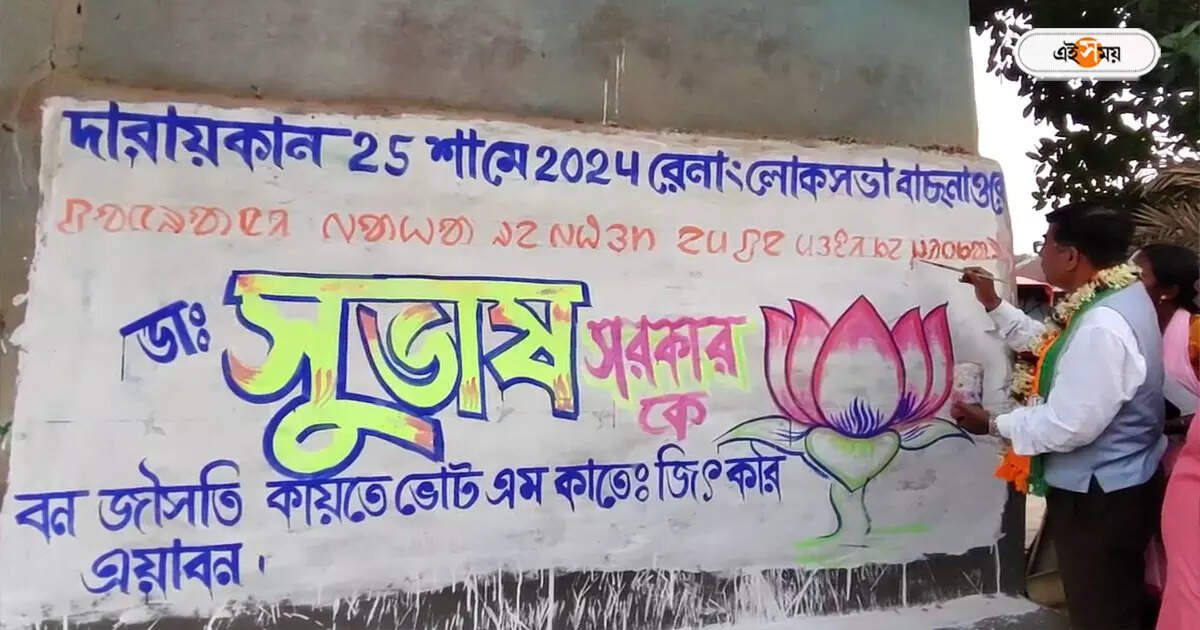 এইসময়
দারায়কান 25 শামে 2024 রেনাং লোকসভা বাছনাওরে
ডাঃ সুভাষ সরকার
কে
বন জীসতি কায়তে ভোট এম কাতেঃ জিৎ কার
এয়াবন।